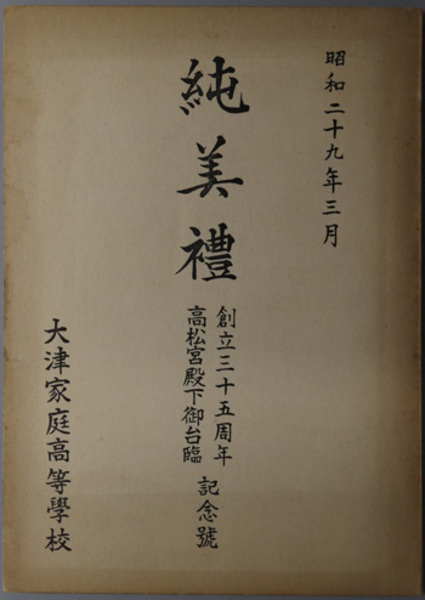 昭和二十九年三月
純美禮
創立三十五周年
高松宮殿下御台臨
記念號
大津家庭高等學校